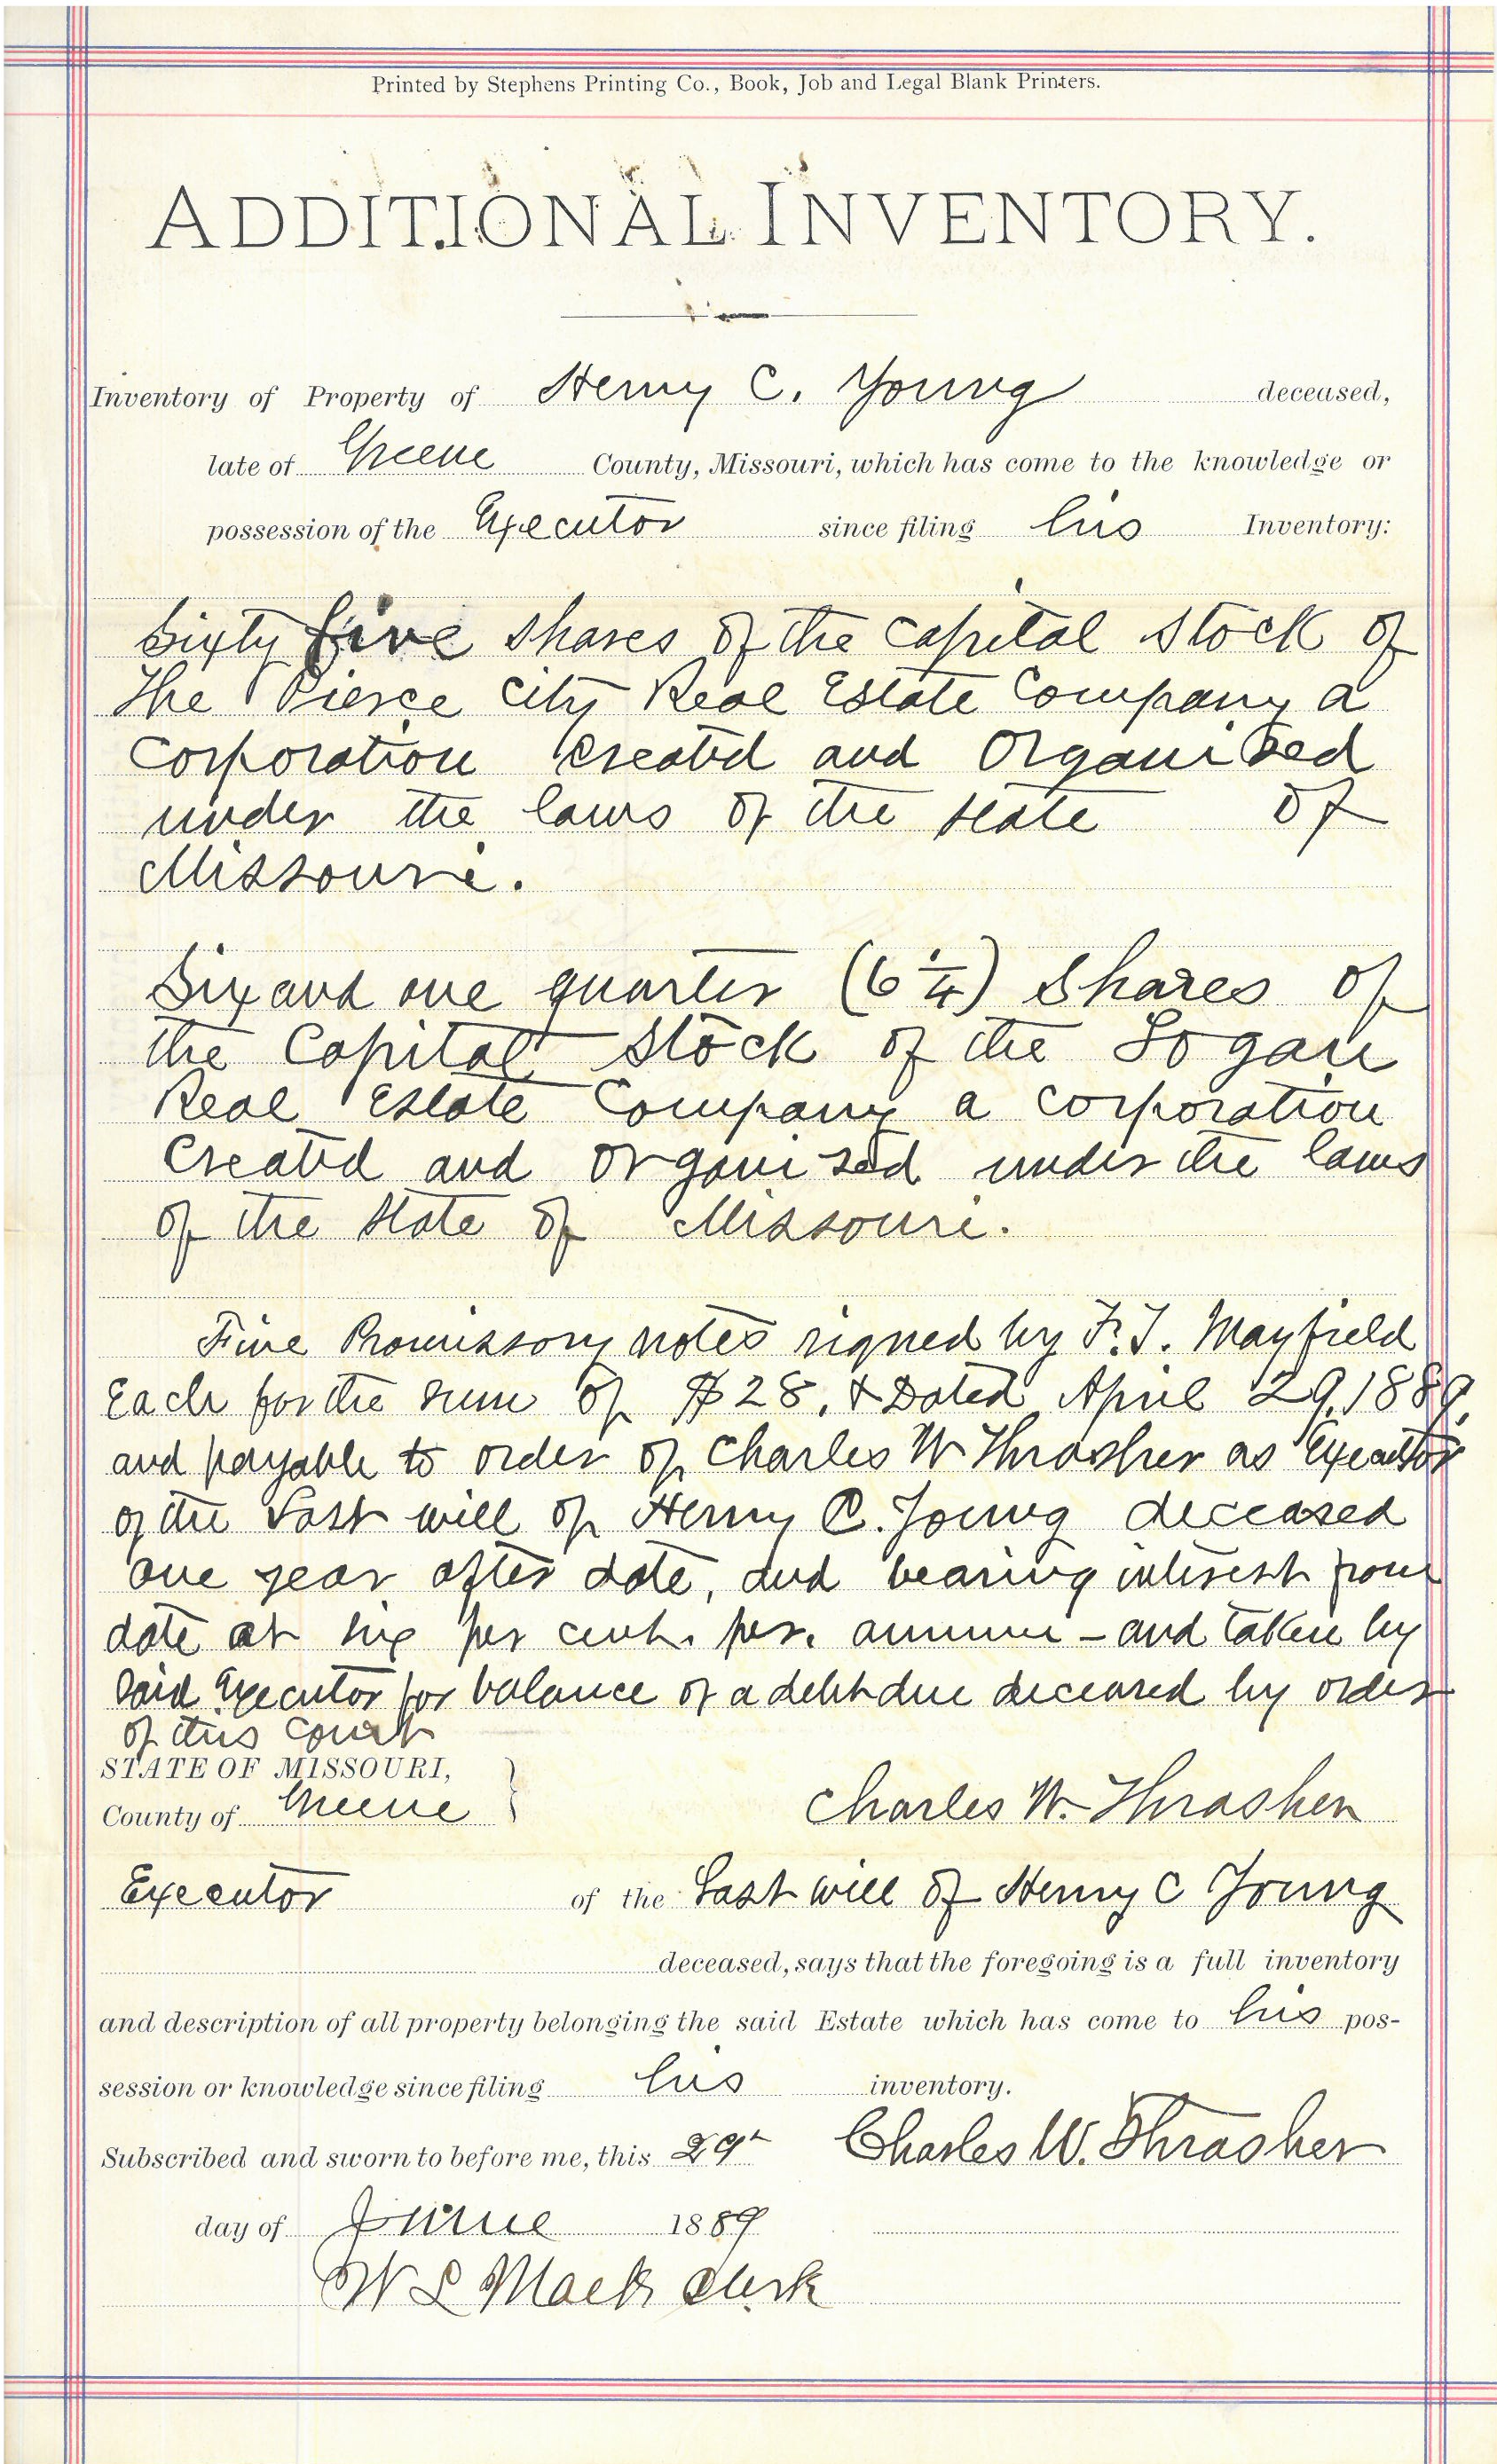 Printed by Stephens Printing Co., Book, Job and Legal Blank Printers.
ADDITIONAL INVENTORY.
Inventory of Property of Henry C. Young deceased,
late of Greene County, Missouri, which has come to the knowledge or
possession of the Executor since filing his Inventory:
Sixty five shares of the capital stock of
The Pierce City Real Estate Company a
Corporation created and Organized
under the laws of the state of
Missouri.
Six and one quarter (6 1/4) Shares of
the Capital Stock of the Logan
Real Estate Company a corporation
Created and organized under the laws
of the State of Missouri.
Five Promissory notes signed by F. T. Mayfield
Each for the sum of $28. & Dated April 29, 1889.
and payable to order of Charles W Thrasher as Executor
of the Last will of Henry C. Young deceased
one year after date, and bearing interest from
date at six per cent. per. annum - and taken by
said Executor for balance of a debt due deceased by order
of this court
STATE OF MISSOURI,
County of Greene } Charles W. Thrasher
Executor of the Last will of Henry C Young
deceased, says that the foregoing is a full inventory
and description of all property belonging the said Estate which has come to his pos-
session or knowledge since filing his inventory.
Subscribed and sworn to before me, this 29th Charles W. Thrasher
day of June 1889
W L Mack Clerk